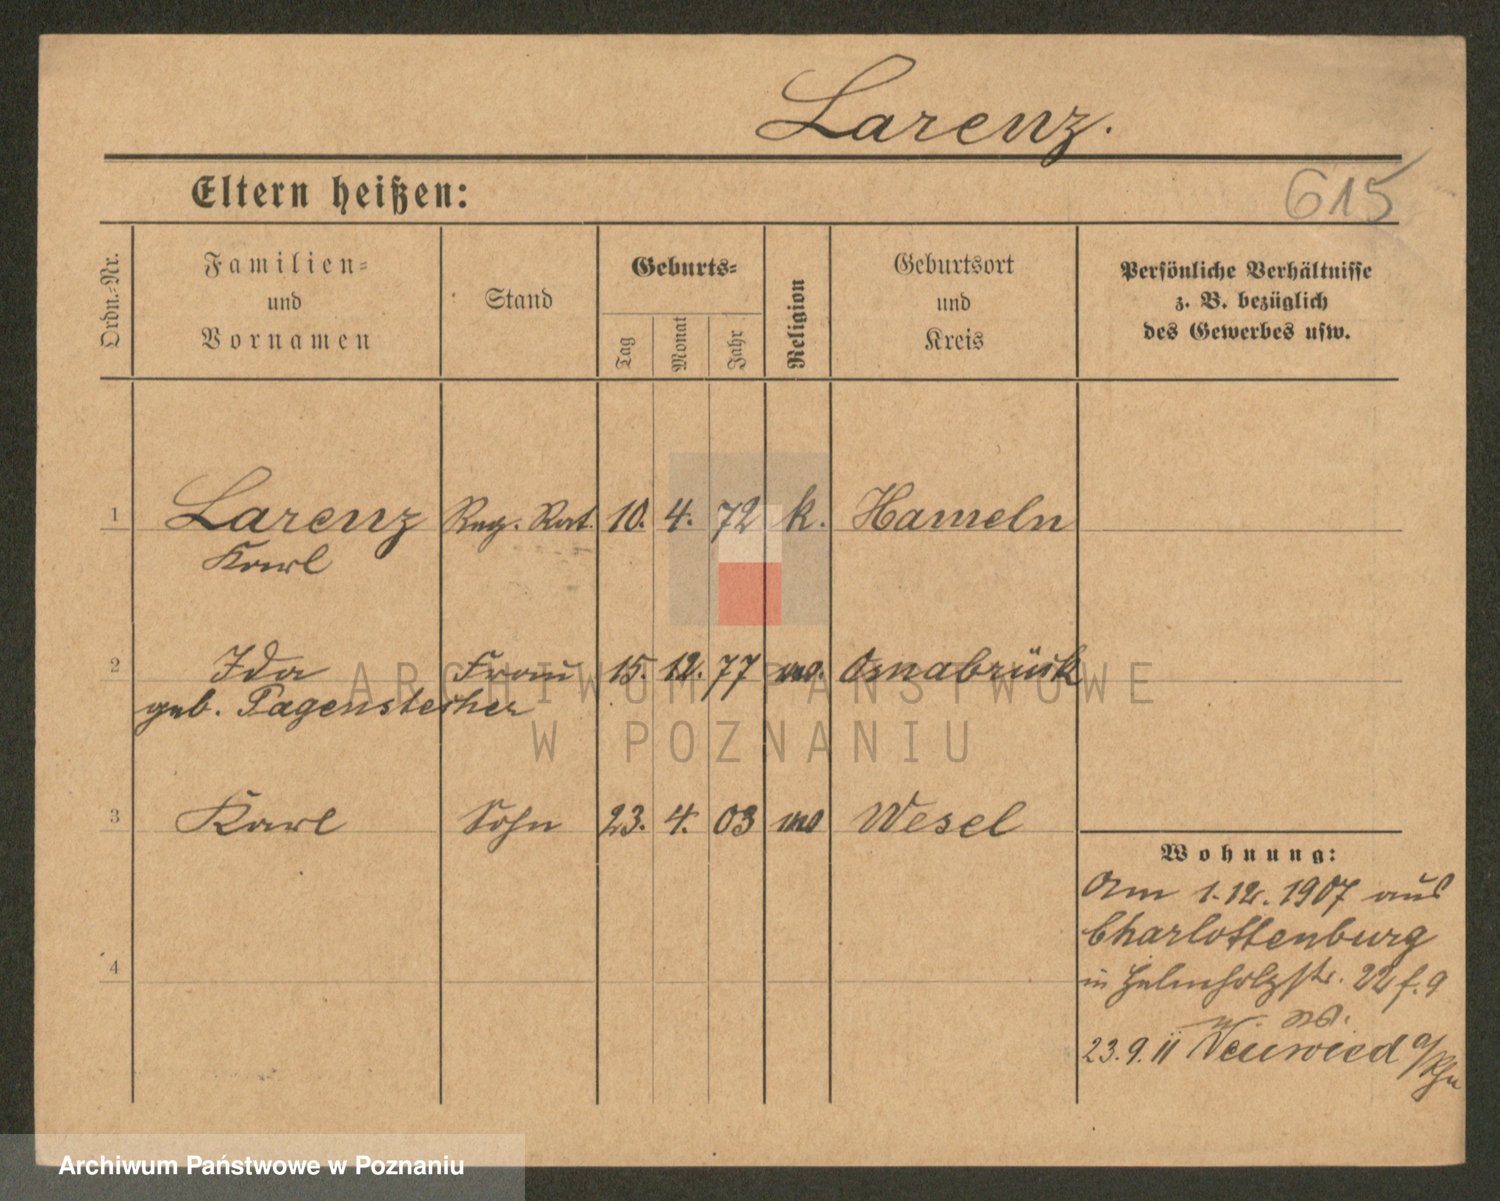 Larenz.
Eltern heißen:
615
Ordn.-Nr.
Familien- und Vornamen
Stand
Geburts-
Tag
Monat
Jahr
Religion
Geburtsort und Kreis
Persönliche Verhältnisse
z. B. bezüglich
des Gewerbes usw.
1 Larenz Reg. Rat. 10. 4. 72 k. Hameln
Karl
2 Ida Frau 15. 12. 77 Osnabrück
geb. Pagenstecher
3 Karl Sohn 23. 4. 03 Wesel
4
Wohnung:
Am 1.12.1907 aus
Charlottenburg
in Helmholzstr. 22 f. 9
23.9.11 Neuwied a/Rhn
ARCHIWUM PAŃSTWOWE
W POZNANIU
Archiwum Państwowe w Poznaniu